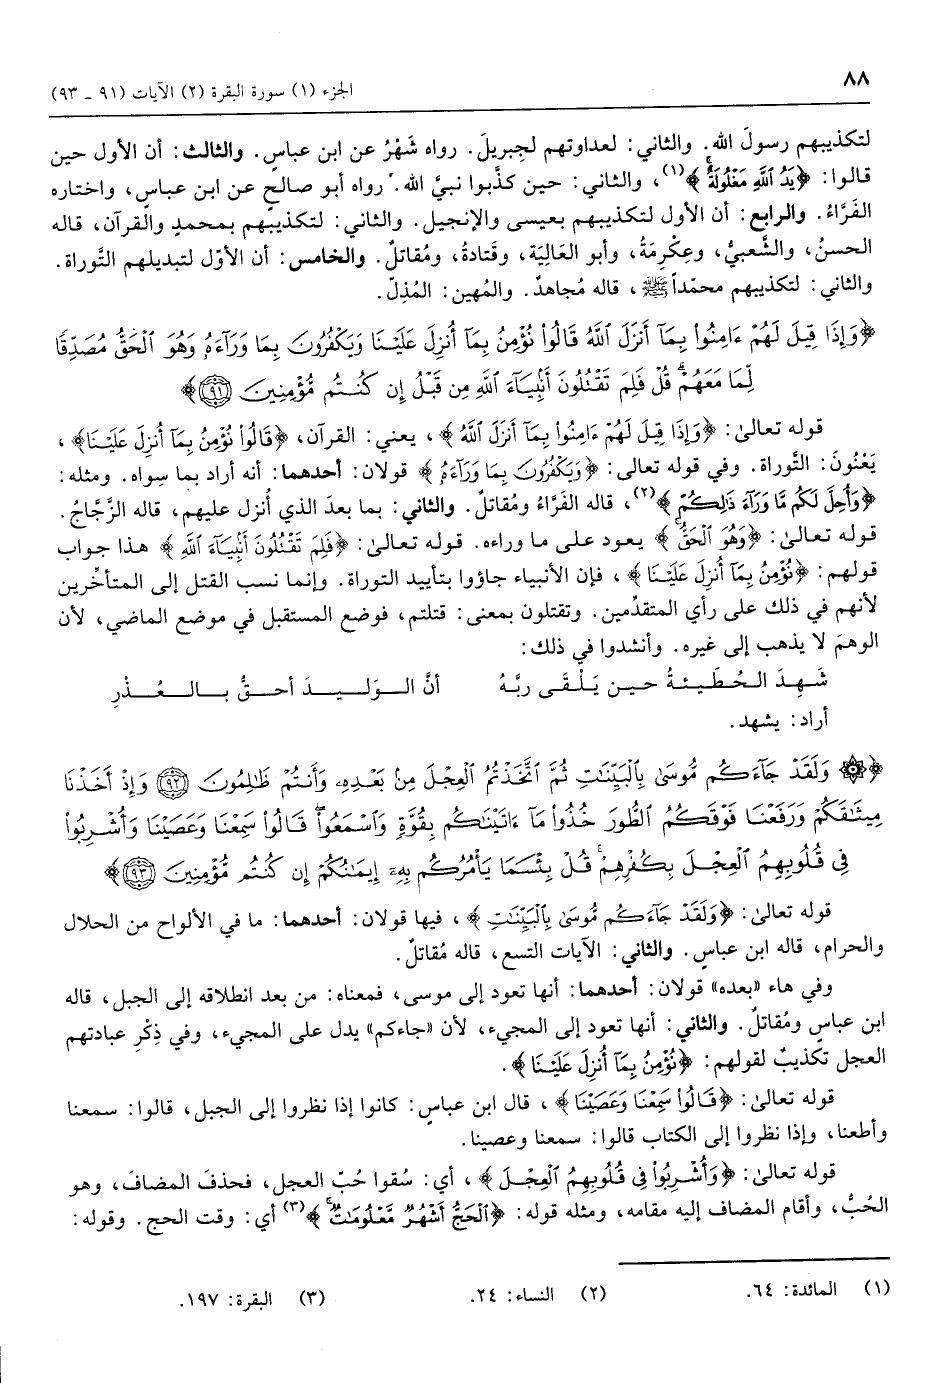 ٨٨
الجزء (١) سورة البقرة (٢) الآيات (٩١ ـ ٩٣)
لتكذيبهم رسولَ الله. والثاني: لعداوتهم لجبريلَ. رواه شَهْرُ عن ابن عباسٍ. والثالث: أن الأول حين
قالوا: ﴿يَدُ اللَّهِ مَغْلُولَةٌ﴾(١)، والثاني: حين كذَّبوا نبيَّ الله. رواه أبو صالحٍ عن ابن عباسٍ، واختاره
الفَرَّاءُ. والرابع: أن الأول لتكذيبهم بعيسى والإنجيل. والثاني: لتكذيبهم بمحمدٍ والقرآن، قاله
الحسنُ، والشَّعبيُّ، وعِكْرِمَةُ، وأبو العَالِيَة، وقَتادةُ، ومُقاتلٌ. والخامس: أن الأوّل لتبديلهم التَّوراة.
والثاني: لتكذيبهم محمّداً ﷺ، قاله مُجاهدٌ. والمُهين: المُذِلّ.
﴿وَإِذَا قِيلَ لَهُمْ ءَامِنُوا۟ بِمَآ أَنزَلَ ٱللَّهُ قَالُوا۟ نُؤْمِنُ بِمَآ أُنزِلَ عَلَيْنَا وَيَكْفُرُونَ بِمَا وَرَآءَهُۥ وَهُوَ ٱلْحَقُّ مُصَدِّقًا
لِّمَا مَعَهُمْ ۗ قُلْ فَلِمَ تَقْتُلُونَ أَنۢبِيَآءَ ٱللَّهِ مِن قَبْلُ إِن كُنتُم مُّؤْمِنِينَ ﴿٩١﴾﴾
قوله تعالىٰ: ﴿وَإِذَا قِيلَ لَهُمْ ءَامِنُوا۟ بِمَآ أَنزَلَ ٱللَّهُ﴾، يعني: القرآن، ﴿قَالُوا۟ نُؤْمِنُ بِمَآ أُنزِلَ عَلَيْنَا﴾،
يَعْنُونَ: التَّوراة. وفي قوله تعالى: ﴿وَيَكْفُرُونَ بِمَا وَرَآءَهُۥ﴾ قولان: أحدهما: أنه أراد بما سِواه. ومثله:
﴿وَأُحِلَّ لَكُم مَّا وَرَآءَ ذَٰلِكُمْ﴾(٢)، قاله الفَرَّاءُ ومُقاتلٌ. والثاني: بما بعدَ الذي أُنزل عليهم، قاله الزَّجَّاجُ.
قوله تعالىٰ: ﴿وَهُوَ ٱلْحَقُّ﴾ يعود على ما وراءه. قوله تعالىٰ: ﴿فَلِمَ تَقْتُلُونَ أَنۢبِيَآءَ ٱللَّهِ﴾ هذا جواب
قولهم: ﴿نُؤْمِنُ بِمَآ أُنزِلَ عَلَيْنَا﴾، فإن الأنبياء جاؤوا بتأييد التوراة. وإنما نسب القتل إلى المتأخِّرين
لأنهم في ذلك على رأي المتقدِّمين. وتقتلون بمعنى: قتلتم، فوضع المستقبل في موضع الماضي، لأن
الوهمَ لا يذهب إلى غيره. وأنشدوا في ذلك:
شَهِدَ الحُطَيئةُ حين يَلْقَى ربَّهُ    أنَّ الوَليدَ أحقُّ بالعُذْرِ
أراد: يشهد.
﴿۞ وَلَقَدْ جَآءَكُم مُّوسَىٰ بِٱلْبَيِّنَٰتِ ثُمَّ ٱتَّخَذْتُمُ ٱلْعِجْلَ مِنۢ بَعْدِهِۦ وَأَنتُمْ ظَٰلِمُونَ ﴿٩٢﴾ وَإِذْ أَخَذْنَا
مِيثَٰقَكُمْ وَرَفَعْنَا فَوْقَكُمُ ٱلطُّورَ خُذُوا۟ مَآ ءَاتَيْنَٰكُم بِقُوَّةٍ وَٱسْمَعُوا۟ ۖ قَالُوا۟ سَمِعْنَا وَعَصَيْنَا وَأُشْرِبُوا۟
فِى قُلُوبِهِمُ ٱلْعِجْلَ بِكُفْرِهِمْ ۚ قُلْ بِئْسَمَا يَأْمُرُكُم بِهِۦٓ إِيمَٰنُكُمْ إِن كُنتُم مُّؤْمِنِينَ ﴿٩٣﴾﴾
قوله تعالىٰ: ﴿وَلَقَدْ جَآءَكُم مُّوسَىٰ بِٱلْبَيِّنَٰتِ﴾، فيها قولان: أحدهما: ما في الألواح من الحلال
والحرام، قاله ابن عباسٍ. والثاني: الآيات التسع، قاله مُقاتلٌ.
وفي هاء «بعده» قولان: أحدهما: أنها تعود إلى موسى، فمعناه: من بعد انطلاقه إلى الجبل، قاله
ابن عباسٍ ومُقاتلٌ. والثاني: أنها تعود إلى المجيء، لأن «جاءكم» يدل على المجيء، وفي ذِكْرِ عبادتهم
العجل تكذيبٌ لقولهم: ﴿نُؤْمِنُ بِمَآ أُنزِلَ عَلَيْنَا﴾.
قوله تعالىٰ: ﴿قَالُوا۟ سَمِعْنَا وَعَصَيْنَا﴾، قال ابن عباسٍ: كانوا إذا نظروا إلى الجبل، قالوا: سمعنا
وأطعنا، وإذا نظروا إلى الكتاب قالوا: سمعنا وعصينا.
قوله تعالىٰ: ﴿وَأُشْرِبُوا۟ فِى قُلُوبِهِمُ ٱلْعِجْلَ﴾، أي: سُقوا حُبّ العجل، فحذفَ المضاف، وهو
الحُبُّ، وأقام المضاف إليه مقامه، ومثله قوله: ﴿ٱلْحَجُّ أَشْهُرٌ مَّعْلُومَٰتٌ﴾(٣) أي: وقت الحج. وقوله:
(١) المائدة: ٦٤.    (٢) النساء: ٢٤.    (٣) البقرة: ١٩٧.